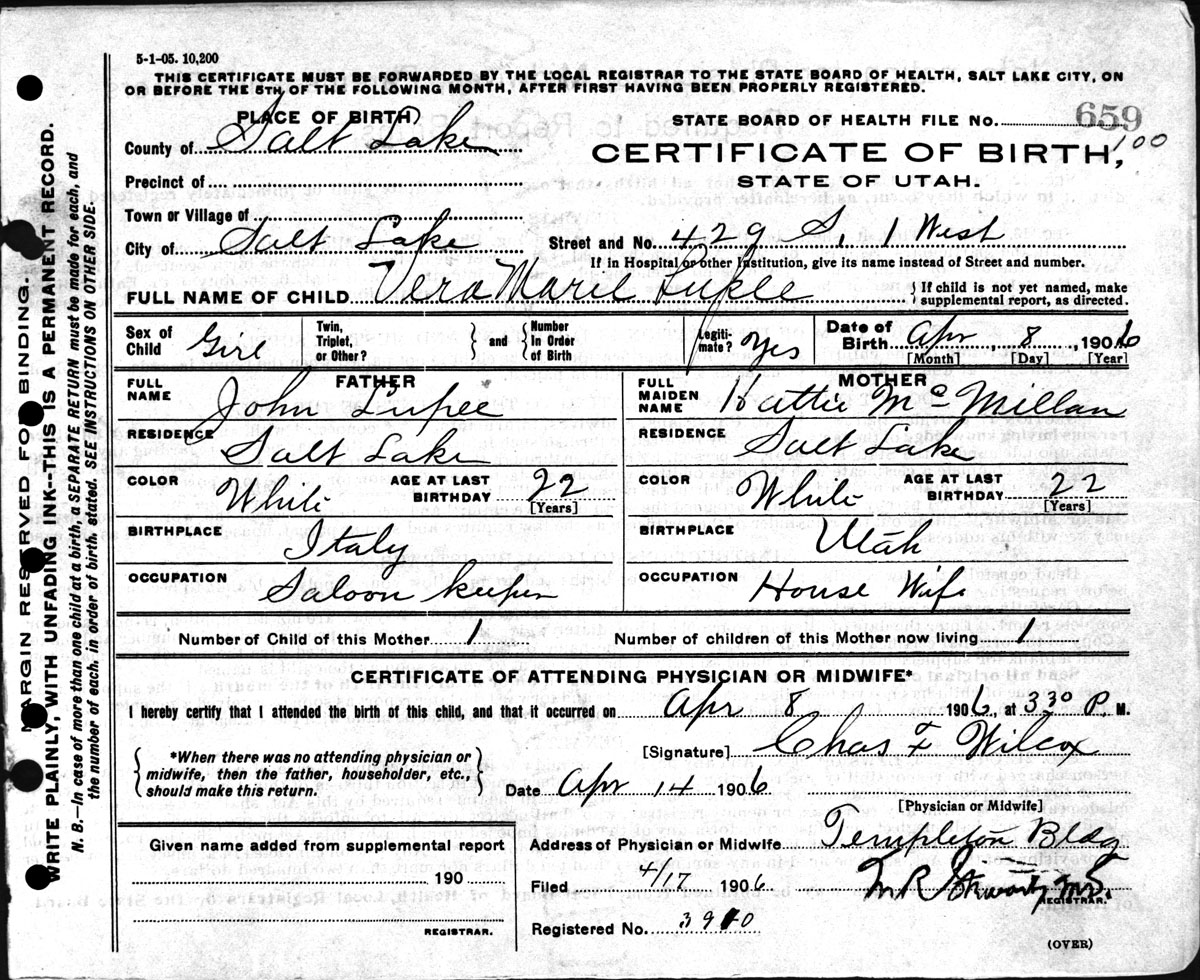 5-1-05. 10,200
THIS CERTIFICATE MUST BE FORWARDED BY THE LOCAL REGISTRAR TO THE STATE BOARD OF HEALTH, SALT LAKE CITY, ON
OR BEFORE THE 5TH OF THE FOLLOWING MONTH, AFTER FIRST HAVING BEEN PROPERLY REGISTERED.
PLACE OF BIRTH
STATE BOARD OF HEALTH FILE NO. 659
100
County of Salt Lake
CERTIFICATE OF BIRTH,
STATE OF UTAH.
Precinct of
Town or Village of
City of Salt Lake
Street and No. 429 S. 1 West
If in Hospital or other Institution, give its name instead of Street and number.
FULL NAME OF CHILD Vera Marie Lupee
{ If child is not yet named, make
supplemental report, as directed.
Sex of Child Girl
Twin, Triplet, or Other?
} and {
Number In Order of Birth
Legiti-mate? yes
Date of Birth Apr 8, 1906
[Month] [Day] [Year]
FATHER
FULL NAME John Lupee
RESIDENCE Salt Lake
COLOR White
AGE AT LAST BIRTHDAY 22
[Years]
BIRTHPLACE Italy
OCCUPATION Saloon keeper
MOTHER
FULL MAIDEN NAME Hattie McMillan
RESIDENCE Salt Lake
COLOR White
AGE AT LAST BIRTHDAY 22
[Years]
BIRTHPLACE Utah
OCCUPATION House Wife
Number of Child of this Mother 1
Number of children of this Mother now living 1
CERTIFICATE OF ATTENDING PHYSICIAN OR MIDWIFE*
I hereby certify that I attended the birth of this child, and that it occurred on Apr 8 1906, at 330 P. M.
{ *When there was no attending physician or
midwife, then the father, householder, etc.,
should make this return. }
[Signature] Chas F Wilcox
Date Apr 14 1906
[Physician or Midwife]
Given name added from supplemental report
190
REGISTRAR.
Address of Physician or Midwife Templeton Bldg
Filed 4/17 1906
REGISTRAR.
Registered No. 3910
(OVER)
MARGIN RESERVED FOR BINDING.
WRITE PLAINLY, WITH UNFADING INK--THIS IS A PERMANENT RECORD.
N. B.—In case of more than one child at a birth, a SEPARATE RETURN must be made for each, and
the number of each, in order of birth, stated. SEE INSTRUCTIONS ON OTHER SIDE.